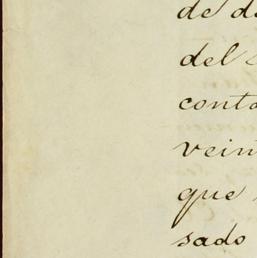 de d
del
conta
vein
que
sado